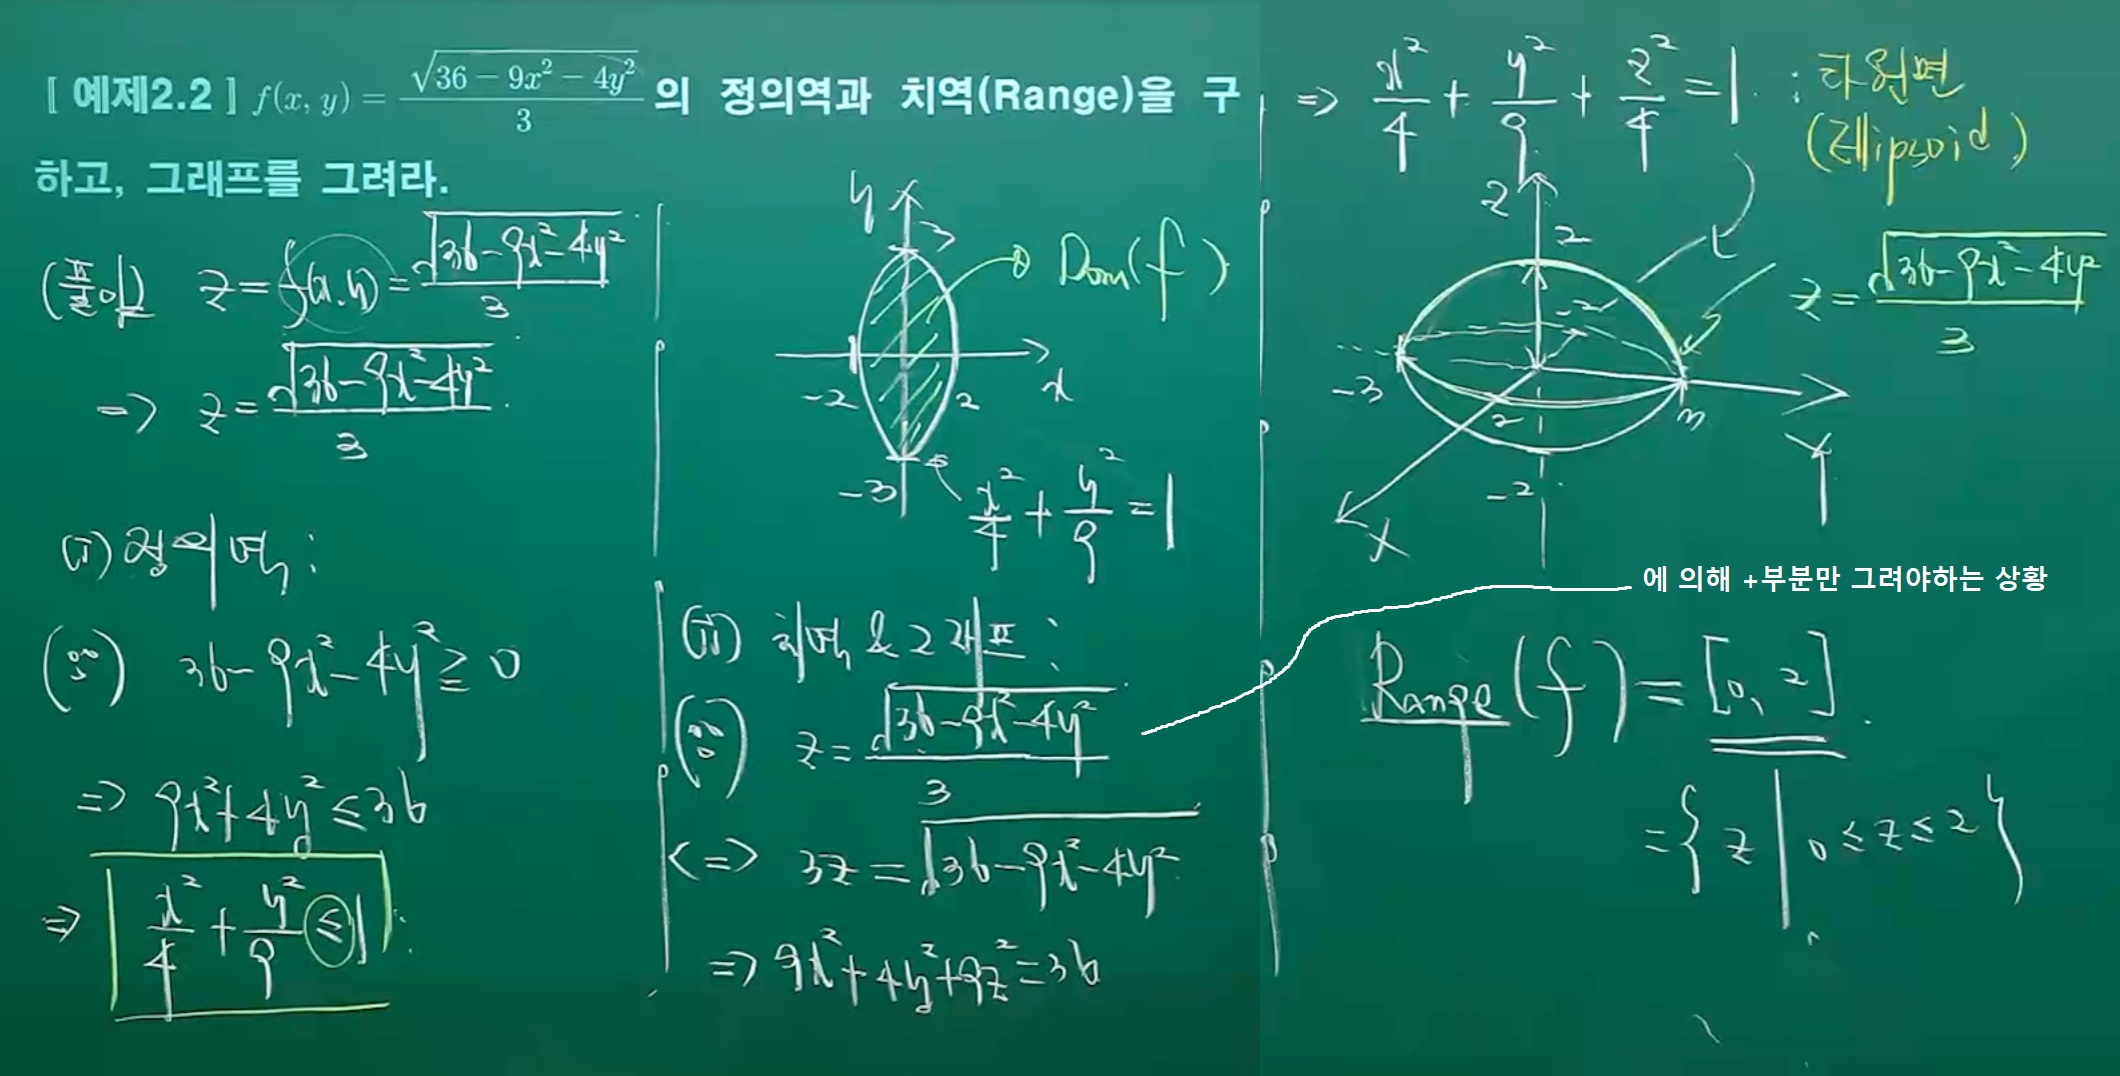 [ 예제2.2 ] f(x, y) = √(36 − 9x² − 4y²) / 3 의 정의역과 치역(Range)을 구
하고, 그래프를 그려라.
(풀이) z = f(x, y) = √(36−9x²−4y²) / 3
=> z = √(36−9x²−4y²) / 3
(i) 정의역 :
(∵) 36−9x²−4y² ≥ 0
=> 9x²+4y² ≤ 36
=> x²/4 + y²/9 ≤ 1
y
3
Dom(f)
-2
2
x
-3
x²/4 + y²/9 = 1
(ii) 치역 & 그래프 :
(∵) z = √(36−9x²−4y²) / 3
<=> 3z = √(36−9x²−4y²)
=> 9x²+4y²+9z² = 36
=> x²/4 + y²/9 + z²/4 = 1 : 타원면
(Ellipsoid)
z
2
-2
z = √(36−9x²−4y²) / 3
-3
2
3
y
-2
x
에 의해 +부분만 그려야하는 상황
Range(f) = [0, 2].
= { z | 0 ≤ z ≤ 2 }